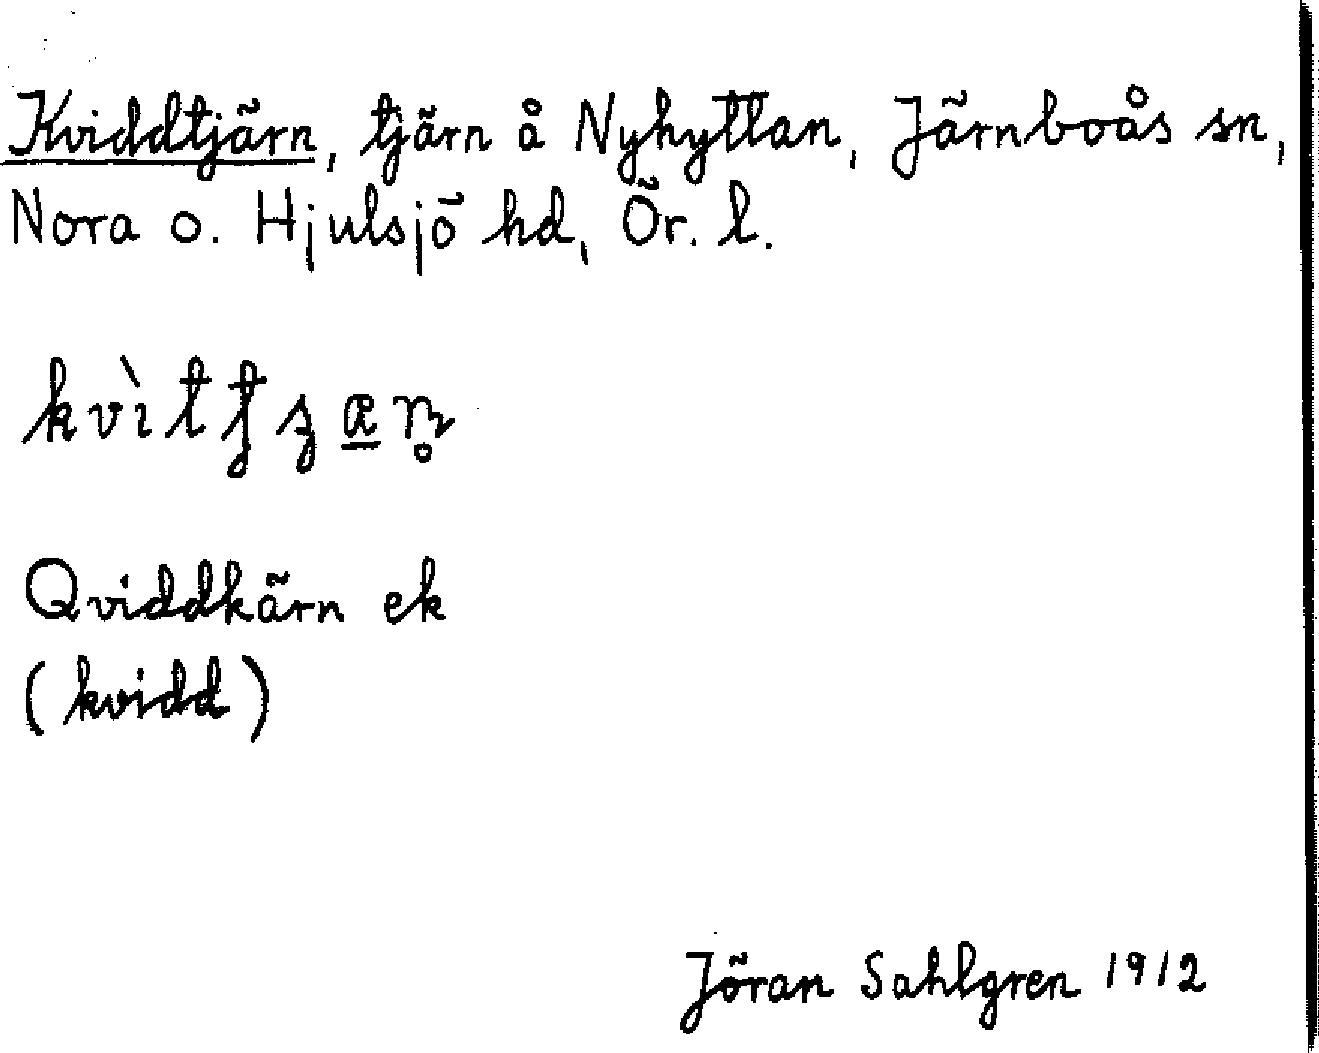 Kviddtjärn, tjärn å Nyhyttan, Järnboås sn,
Nora o. Hjulsjö hd, Ör. l.
Qviddkärn ek
(kvidd)
Jöran Sahlgren 1912